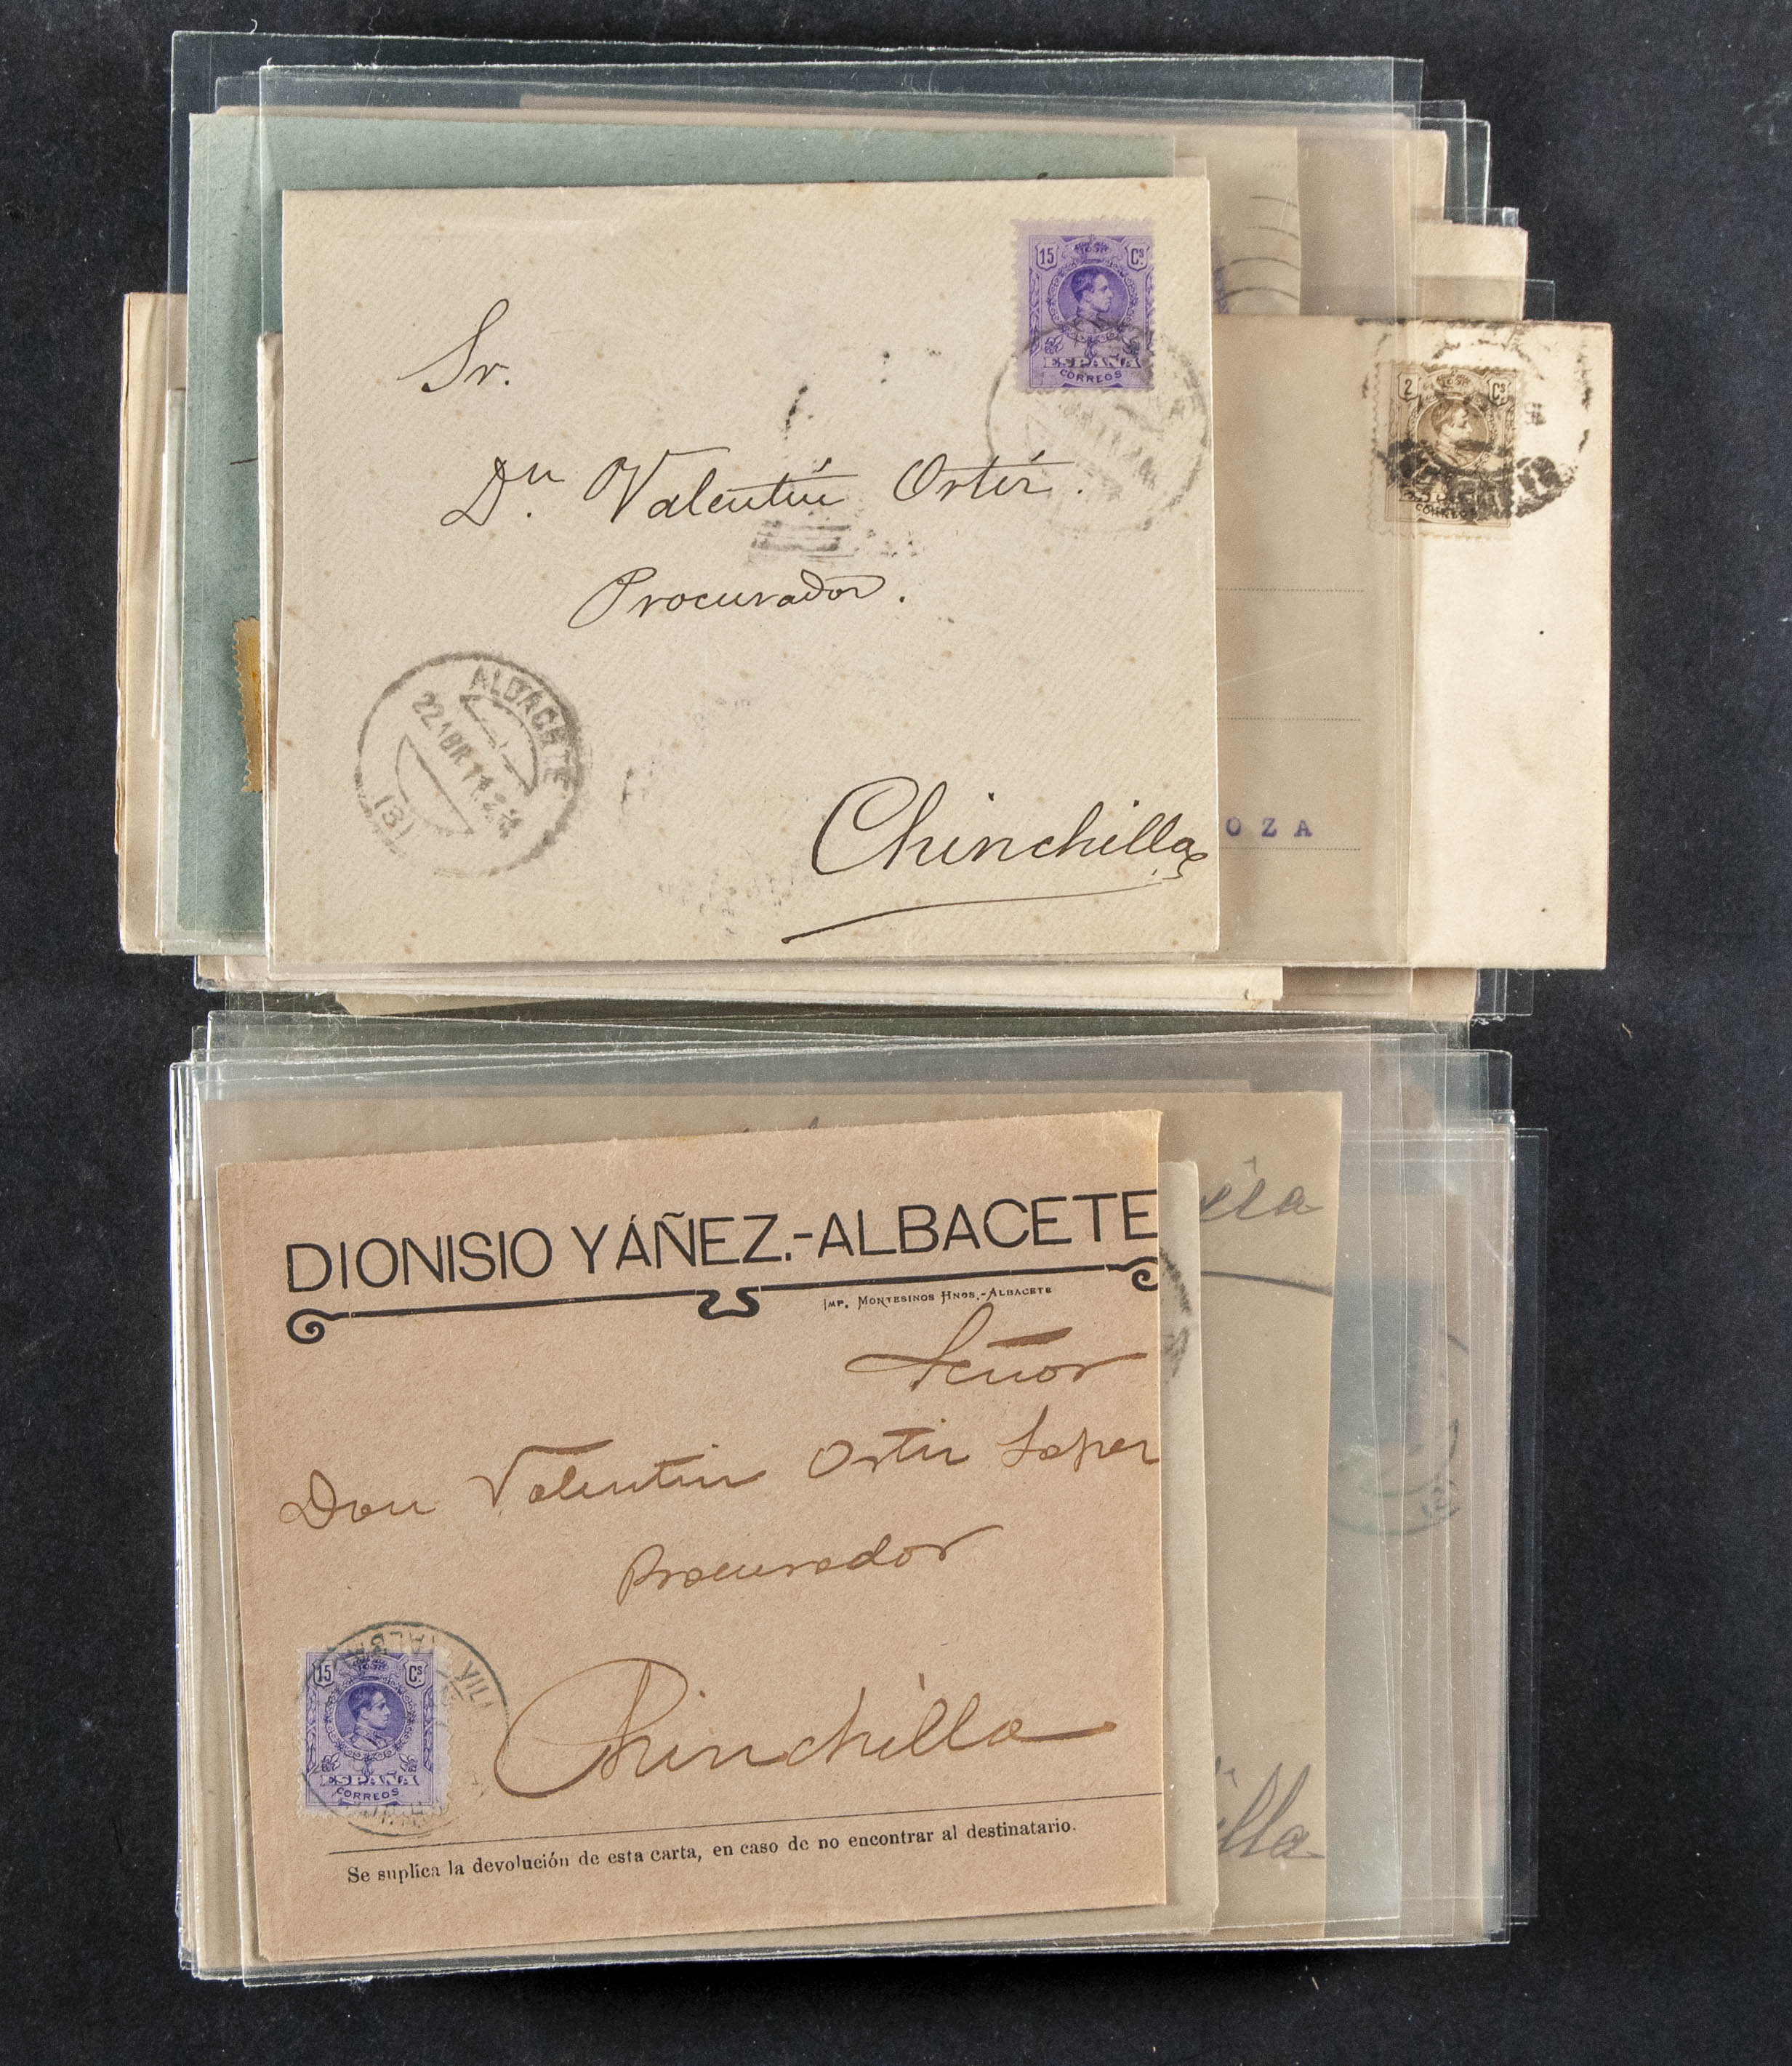 15 Cs
ESPAÑA
CORREOS
Sr.
Dn Valentín Ortiz.
Procurador.
Chinchilla
ALBACETE
22 ABR 11
(3)
2 Cs
CORREOS
OZA
DIONISIO YÁÑEZ.-ALBACETE
IMP. MONTESINOS HNOS.-ALBACETE
Señor
Don Valentin Ortiz Lopez
Procurador
Chinchilla
15 Cs
ESPAÑA
CORREOS
Se suplica la devolución de esta carta, en caso de no encontrar al destinatario.
lla